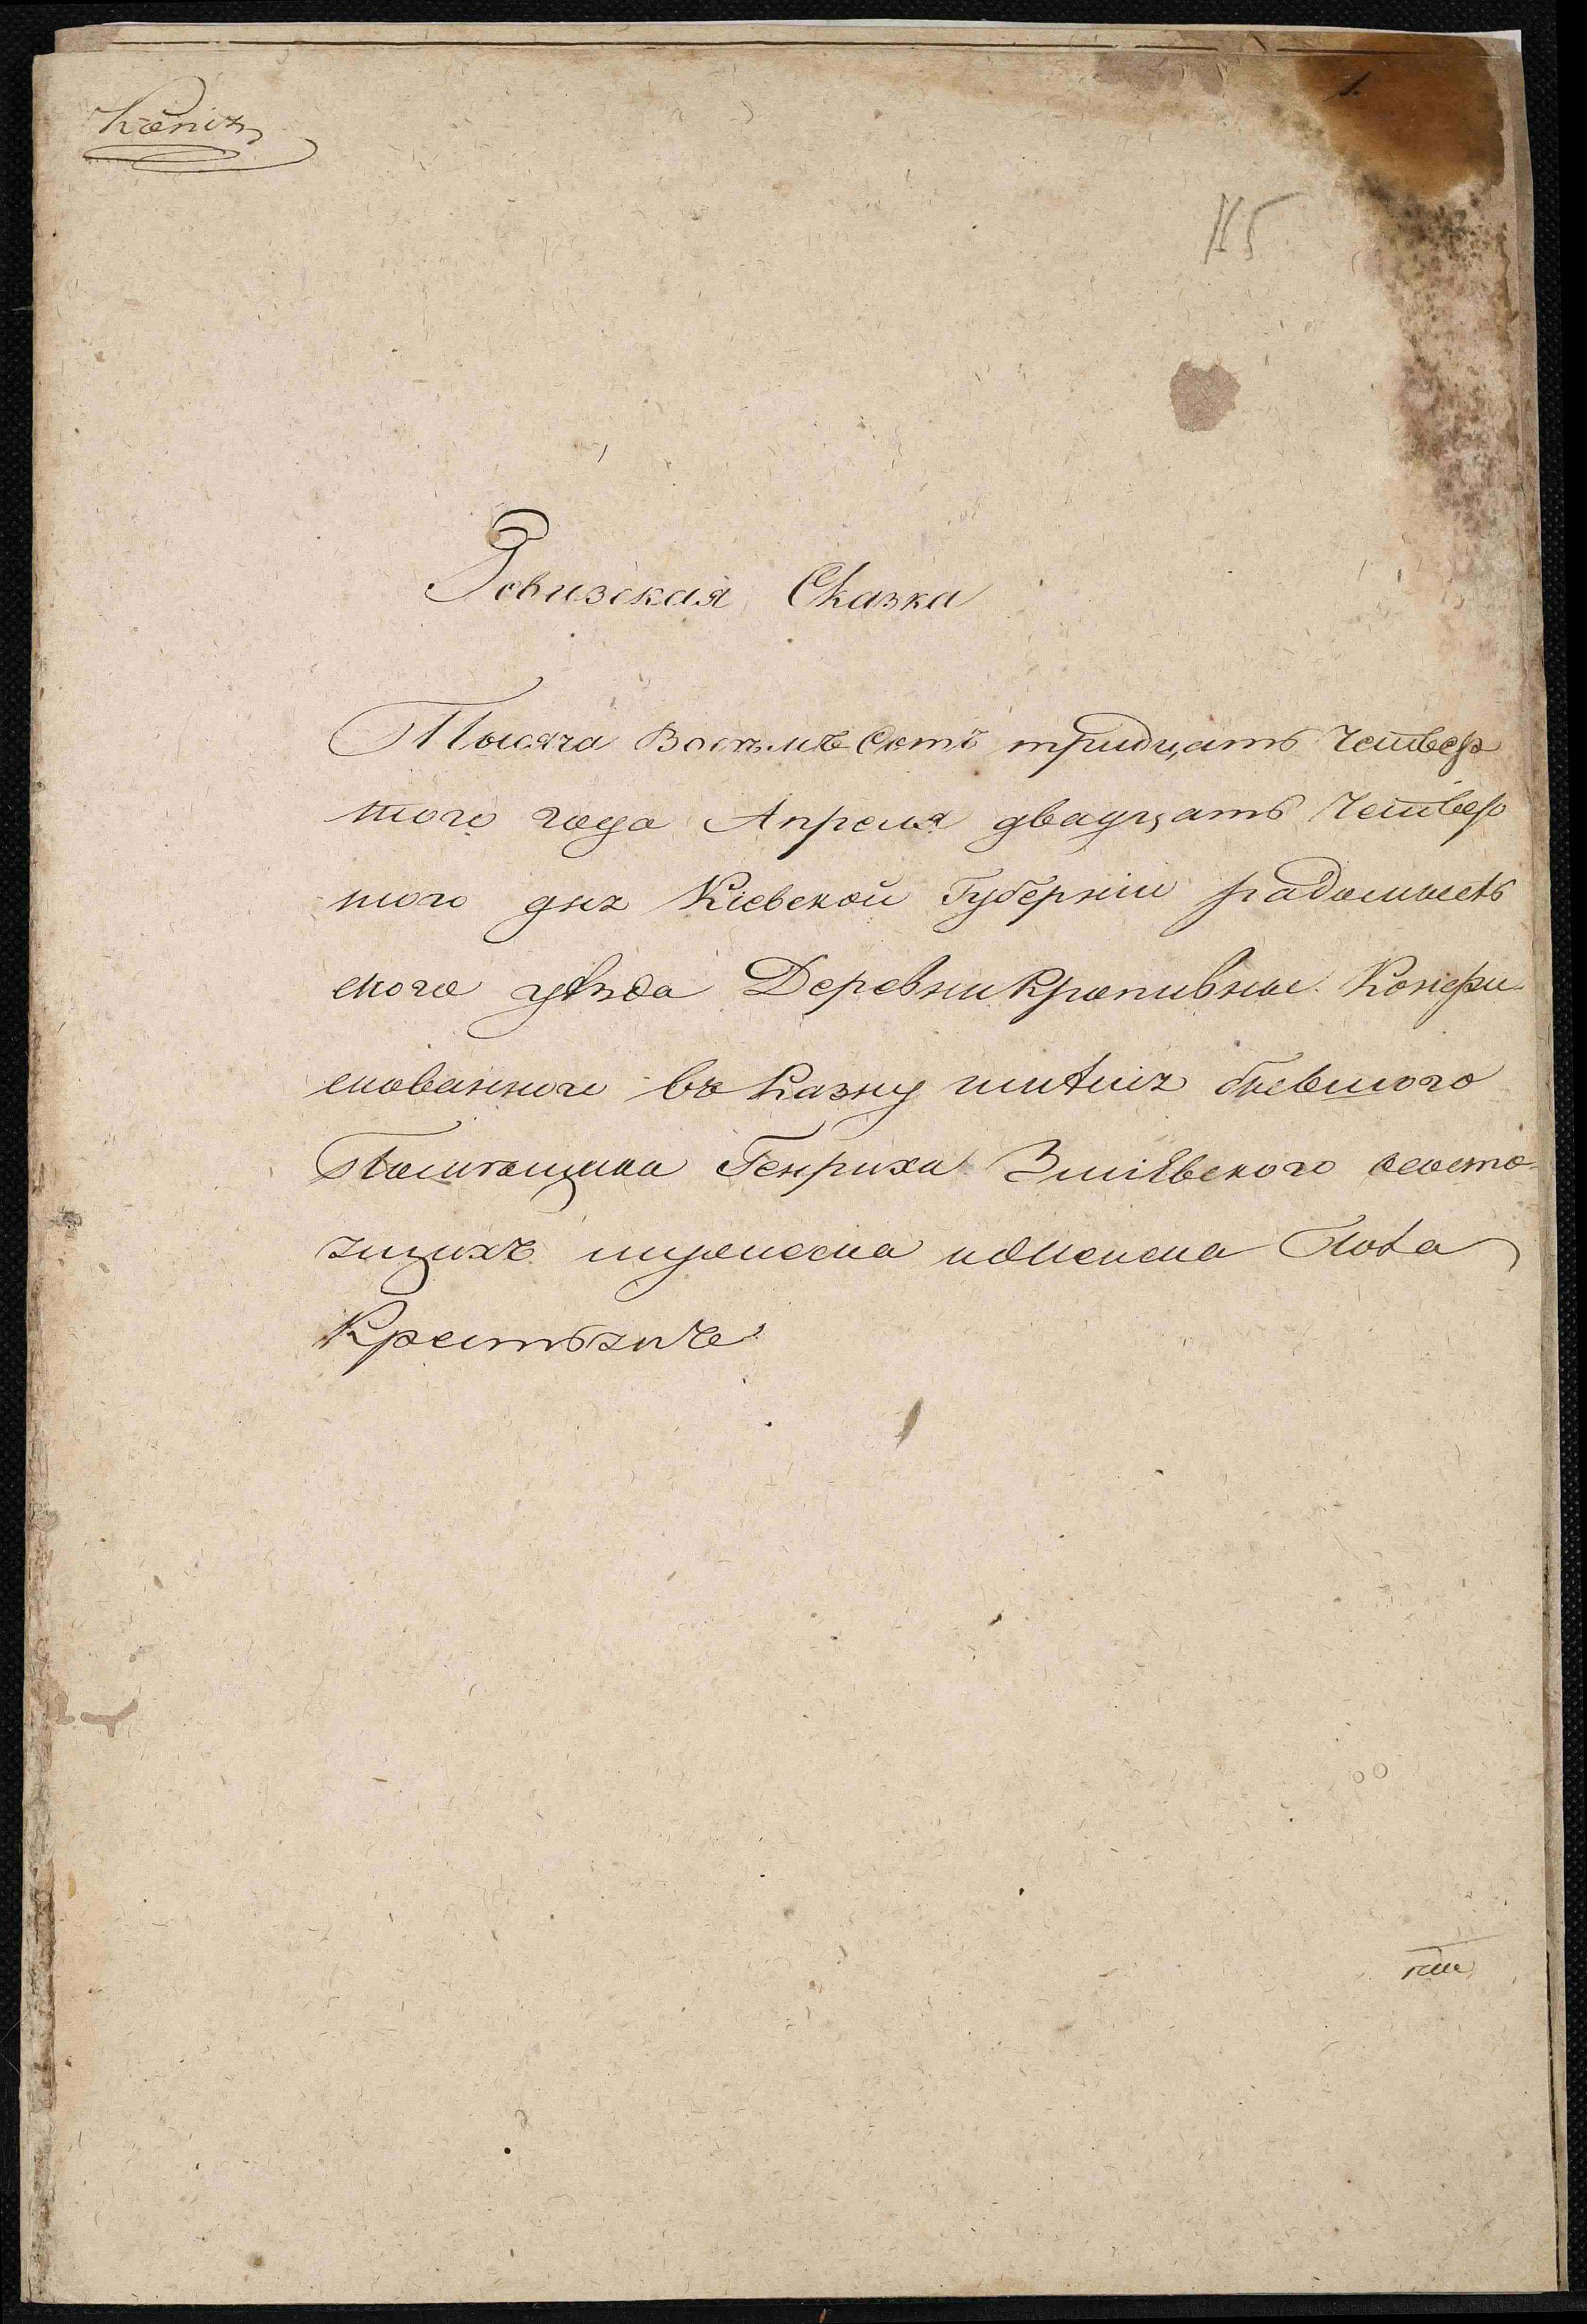 Копія
1.
№5
Ревизская Сказка
Тысяча Восемъ Сотъ тридцать Четвер
того года Апреля двадцать Четвер
того дня Кіевской Губерніи радомысль
ского уѣзда Деревни Крапивны Конфи
скованного въ Казну имѣнія бывшого
Помѣщика Генриха Зміѣвского состо
ящихъ мужеска и женска Пола
Крестьянъ